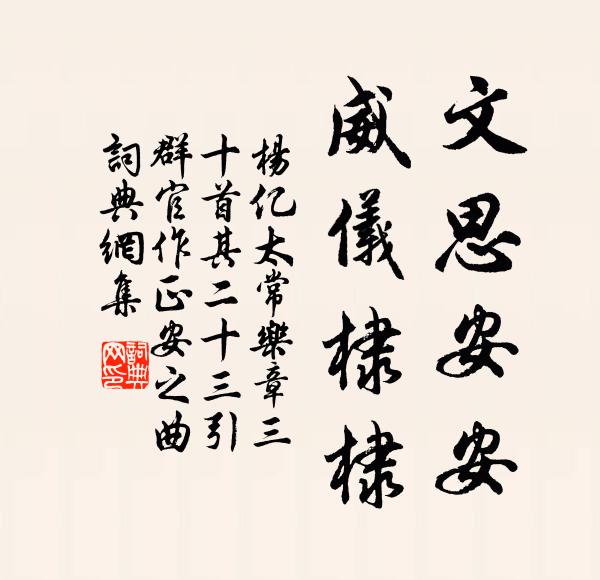 文思安安
威儀棣棣
楊亿太常樂章三
十首其二十三引
群官作正安之曲
詞典網集
詞典
网印